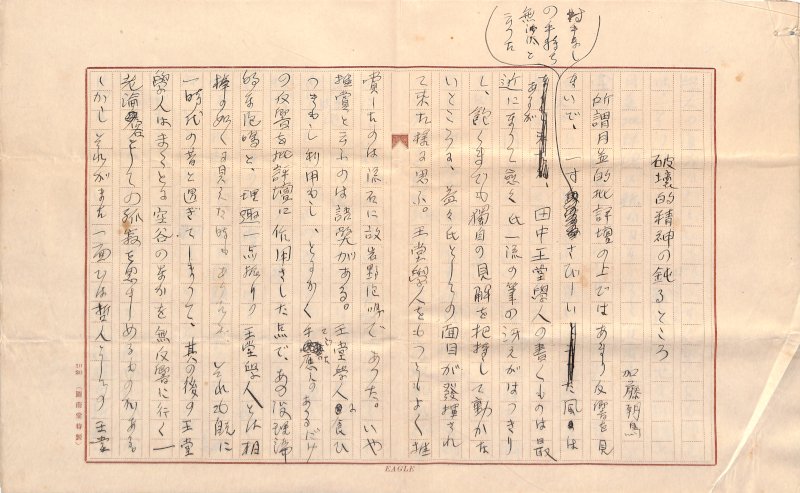 破壊的精神の鈍るところ
加藤朝鳥
所謂月並的批評壇の上ではあまり反響を見
ないで、一寸さびしい風は
あるが、田中王堂學人の書くものは最
近になつて愈々氏一流の筆の冴えがはつきり
し、飽くまでも獨自の見解を把持して動かな
いところに、益々氏としての面目が發揮され
て来た様に思ふ。王堂學人をもつともよく推
賞したのは流石に故岩野泡鳴であつた。いや
推賞と云ふのは語弊がある。王堂學人に食ひ
つきもし利用もし、とにかく
の反響を批評壇に作用さした点で、あの没理論
的な泡鳴と、理趣一点張りの王堂學人とは相
棒の如くに見えた時もありしが、それも既に
一時代の昔と過ぎてしまつて、其の後の王堂
學人はまことに空谷のなかを無反響に行く一
老論客としての孤寂を思はしめるものがある
しかしそれがまた一面には哲人としての王堂
村井なし
の手持ち
無沙汰と
云つた
EAGLE
20 20